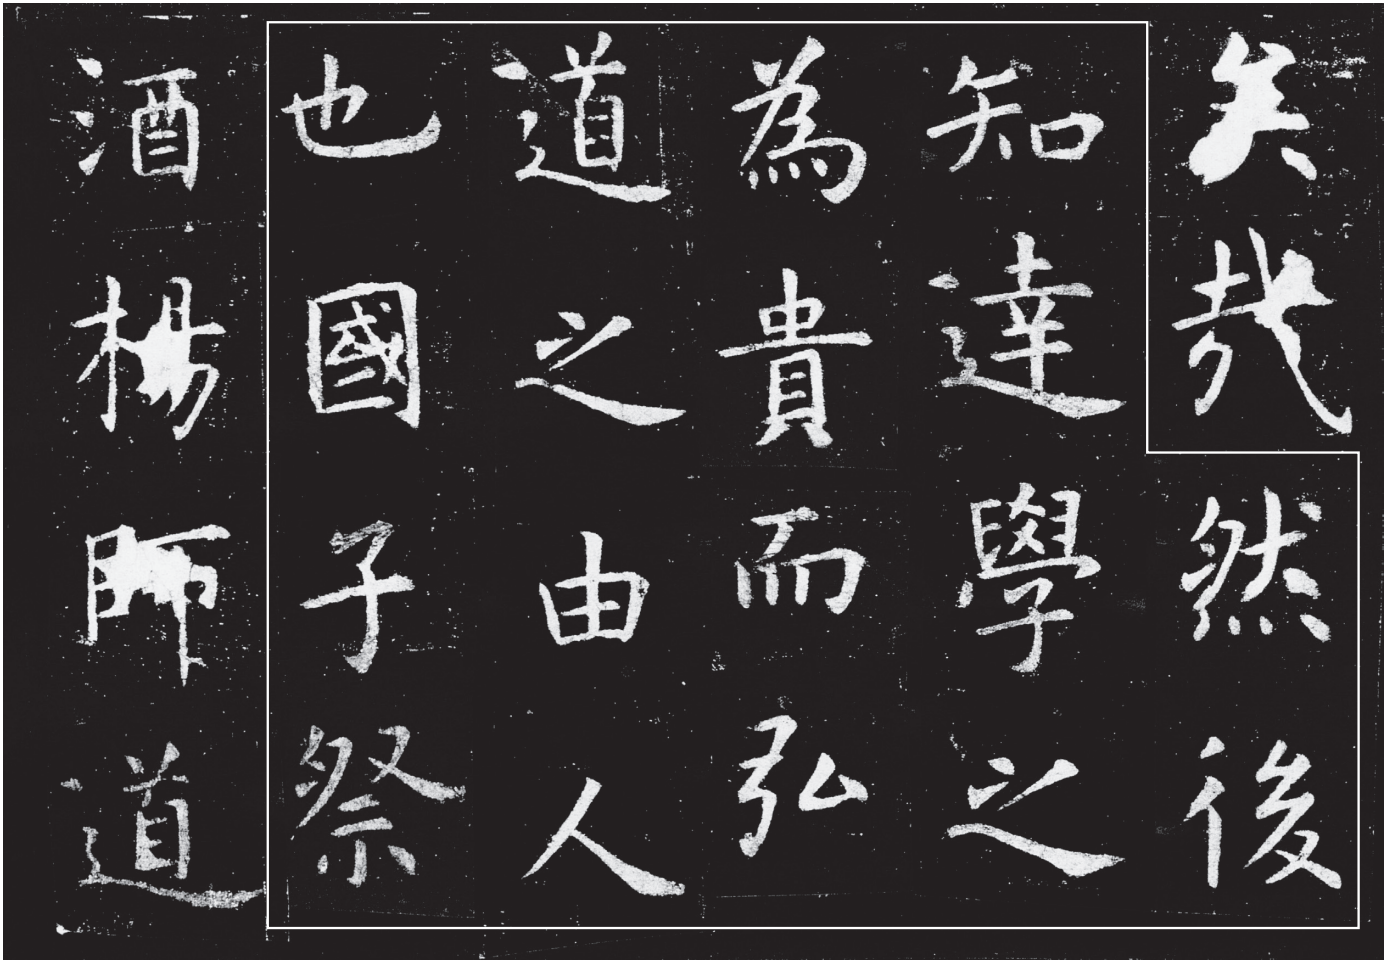 矣哉然後
知達學之
為貴而弘
道之由人
也國子祭
酒楊師道